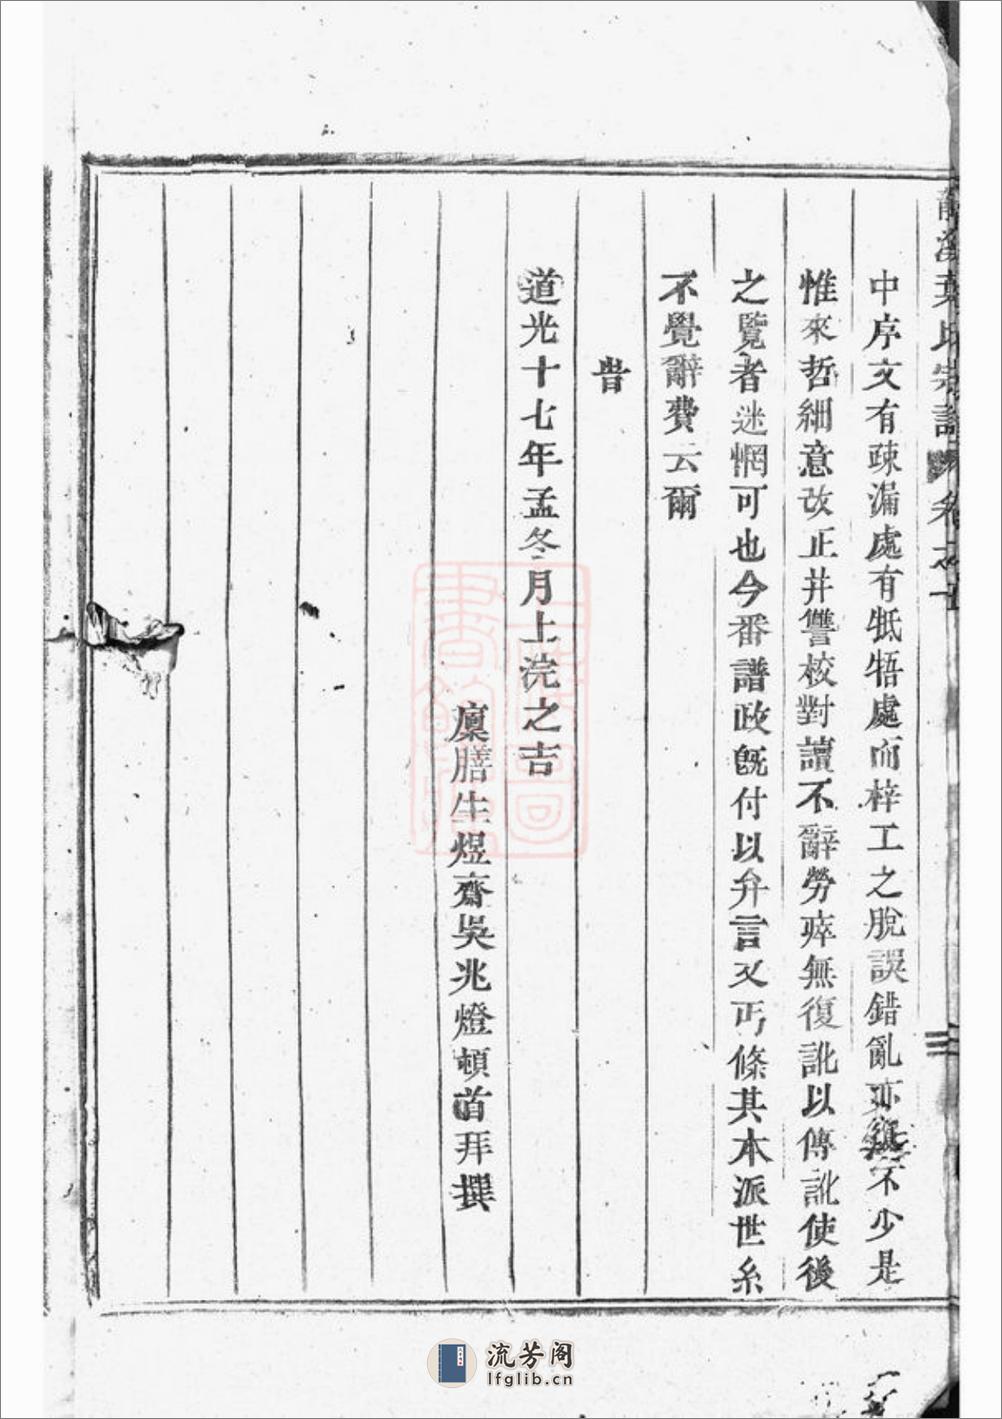 葉氏宗譜 卷之
中序文有疎漏處有牴牾處而梓工之脫誤錯亂亦不少是
惟來哲細意改正并讐校對讀不辭勞瘁無復訛以傳訛使後
之覽者迷惘可也今番譜政既付以弁言又丐條其本派世系
不覺辭費云爾
旹
道光十七年孟冬月上浣之吉
廩膳生煜齋吳兆燈頓首拜撰
上海圖書館藏
流芳阁
lfglib.cn